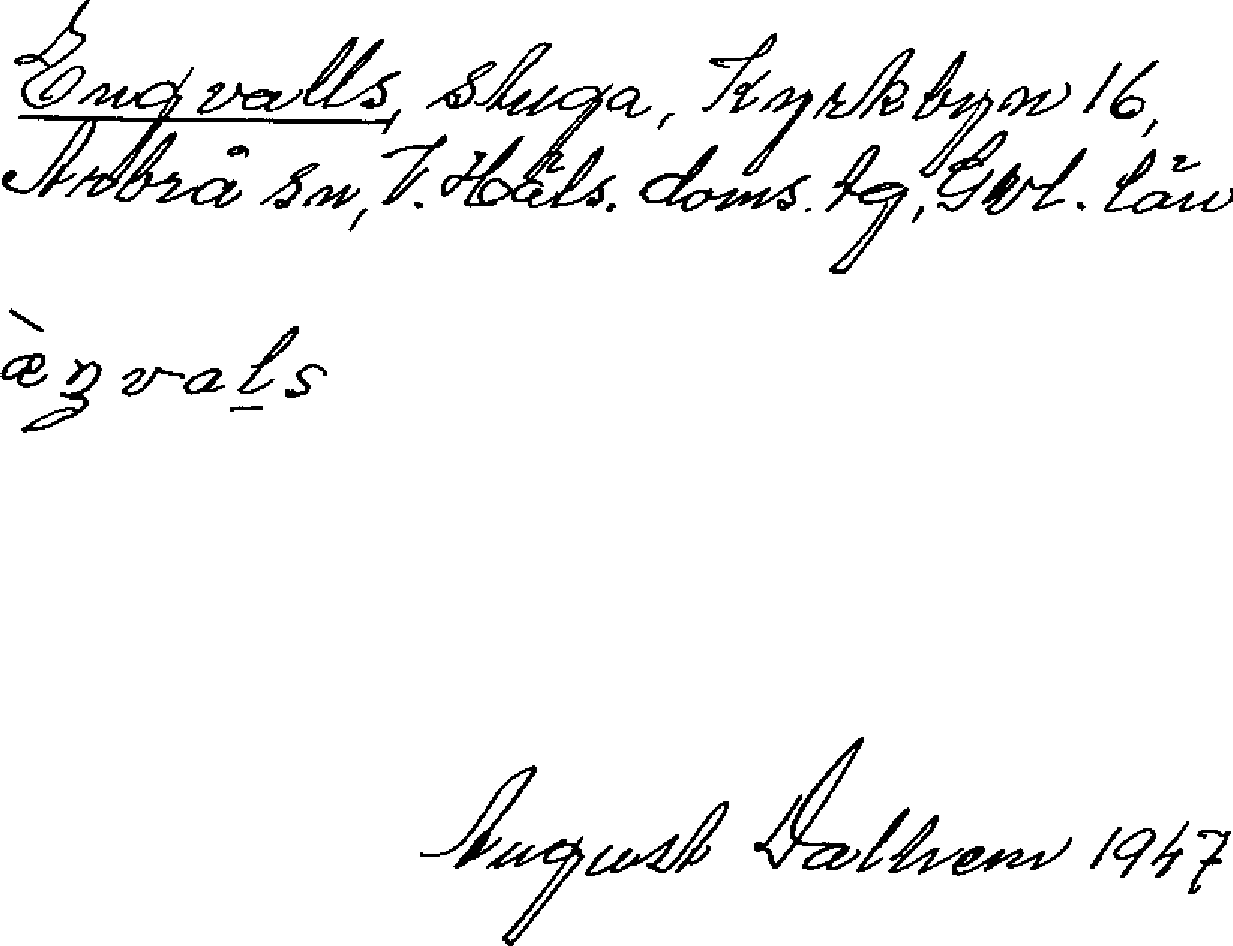 Engvalls, stuga, Kyrkbyn 16,
Arbrå sn, V. Häls. doms. tg, Gvl. län
æ̀ŋvaḻs
August Dalhem 1947